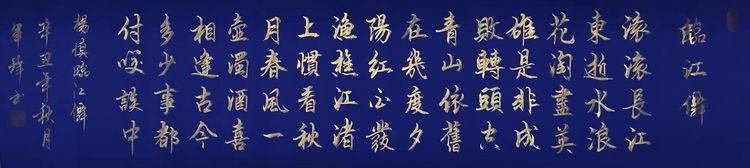 臨江僊
滚滚長江
東逝水浪
花淘盡英
雄是非成
敗轉頭空
青山依舊
在幾度夕
陽紅白發
漁樵江渚
上慣看秋
月春風一
壺濁酒喜
相逢古今
多少事都
付咲談中
楊慎臨江僊
辛丑年秋月